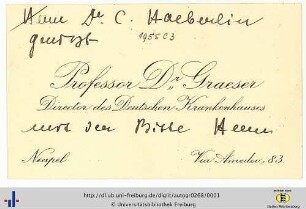 Herrn Dr. C. Haeberlin
gereizt
1955 C3
Professor Dr. Graeser
Director des Deutschen Krankenhauses
mit der Bitte Herrn
Neapel
Via Amedeo, 83
http://dl.ub.uni-freiburg.de/diglit/autog/0268/0001
© Universitätsbibliothek Freiburg